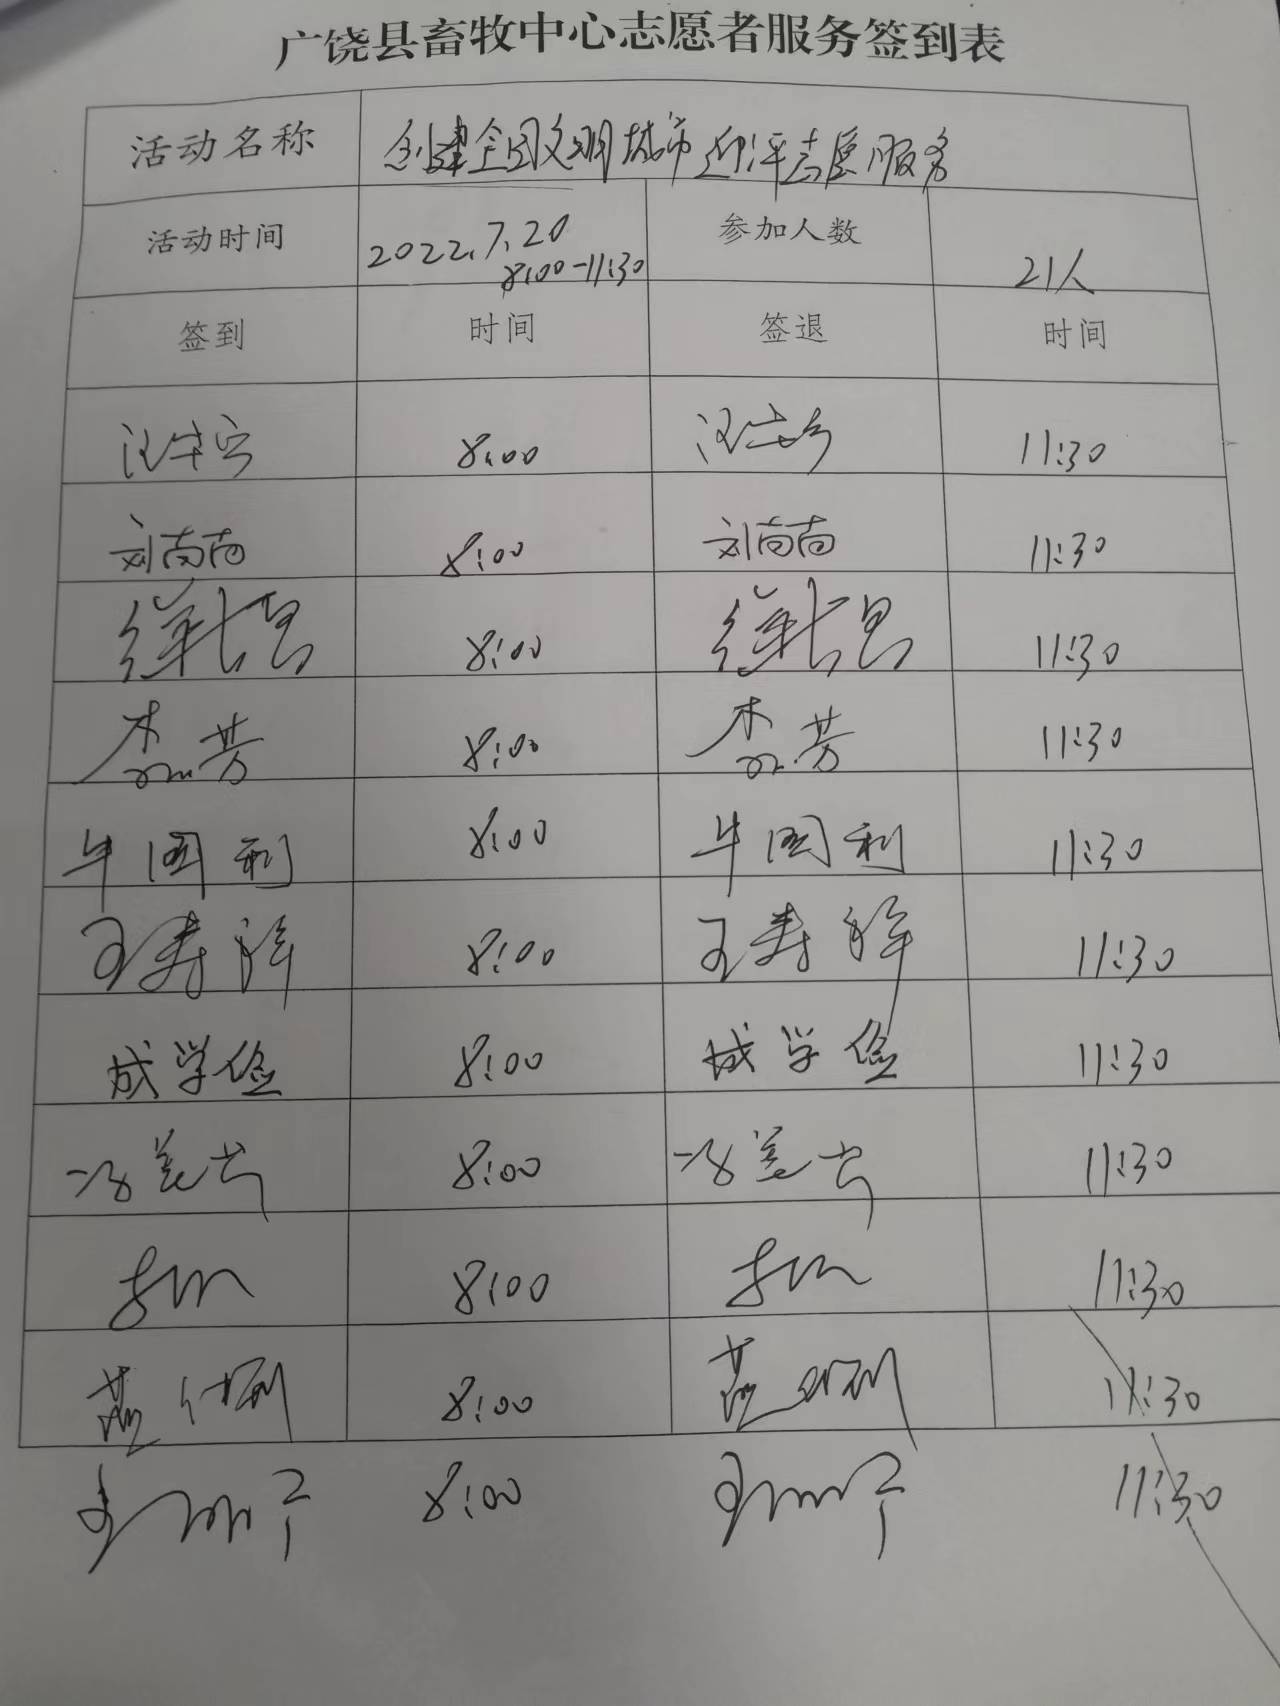 广饶县畜牧中心志愿者服务签到表
活动名称 创建全国文明城市迎评志愿服务
活动时间 2022.7.20 8:00-11:30 参加人数 21人
签到 时间 签退 时间
8:00 11:30
刘苘苘 8:00 刘苘苘 11:30
8:00 11:30
芳 8:00 芳 11:30
牛国利 8:00 牛国利 11:30
王寿祥 8:00 王寿祥 11:30
成学俭 8:00 成学俭 11:30
8:00 11:30
8:00 11:30
8:00 11:30
8:00 11:30